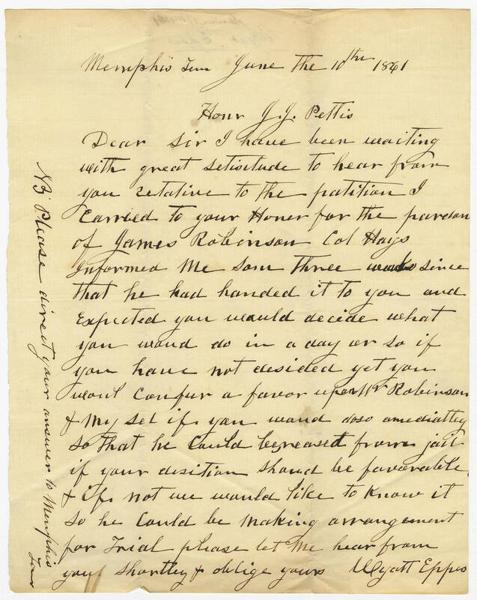 Memphis Tenn June the 10th 1861
Honr J.J. Pettis
Dear Sir I have been waiting
with great selisitude to hear from
you relative to the patition I
Carried to your Honer for the pardon
of James Robinson Col Hays
informed me som three weeks since
that he had handed it to you and
Expected you would decide what
you woud do in a day or so if
you have not desided yet you
woul Confur a favor upon Mr Robinson
& My self if you woud doso amediatley
So that he Could be released from jail
if your desition shoud be favorable
& if not we would like to Know it
So he Could be making arrangement
for Trial please let me hear from
you shortley & oblige yours Wyatt Epps
NB Please direct your answer to Memphis
Tenn